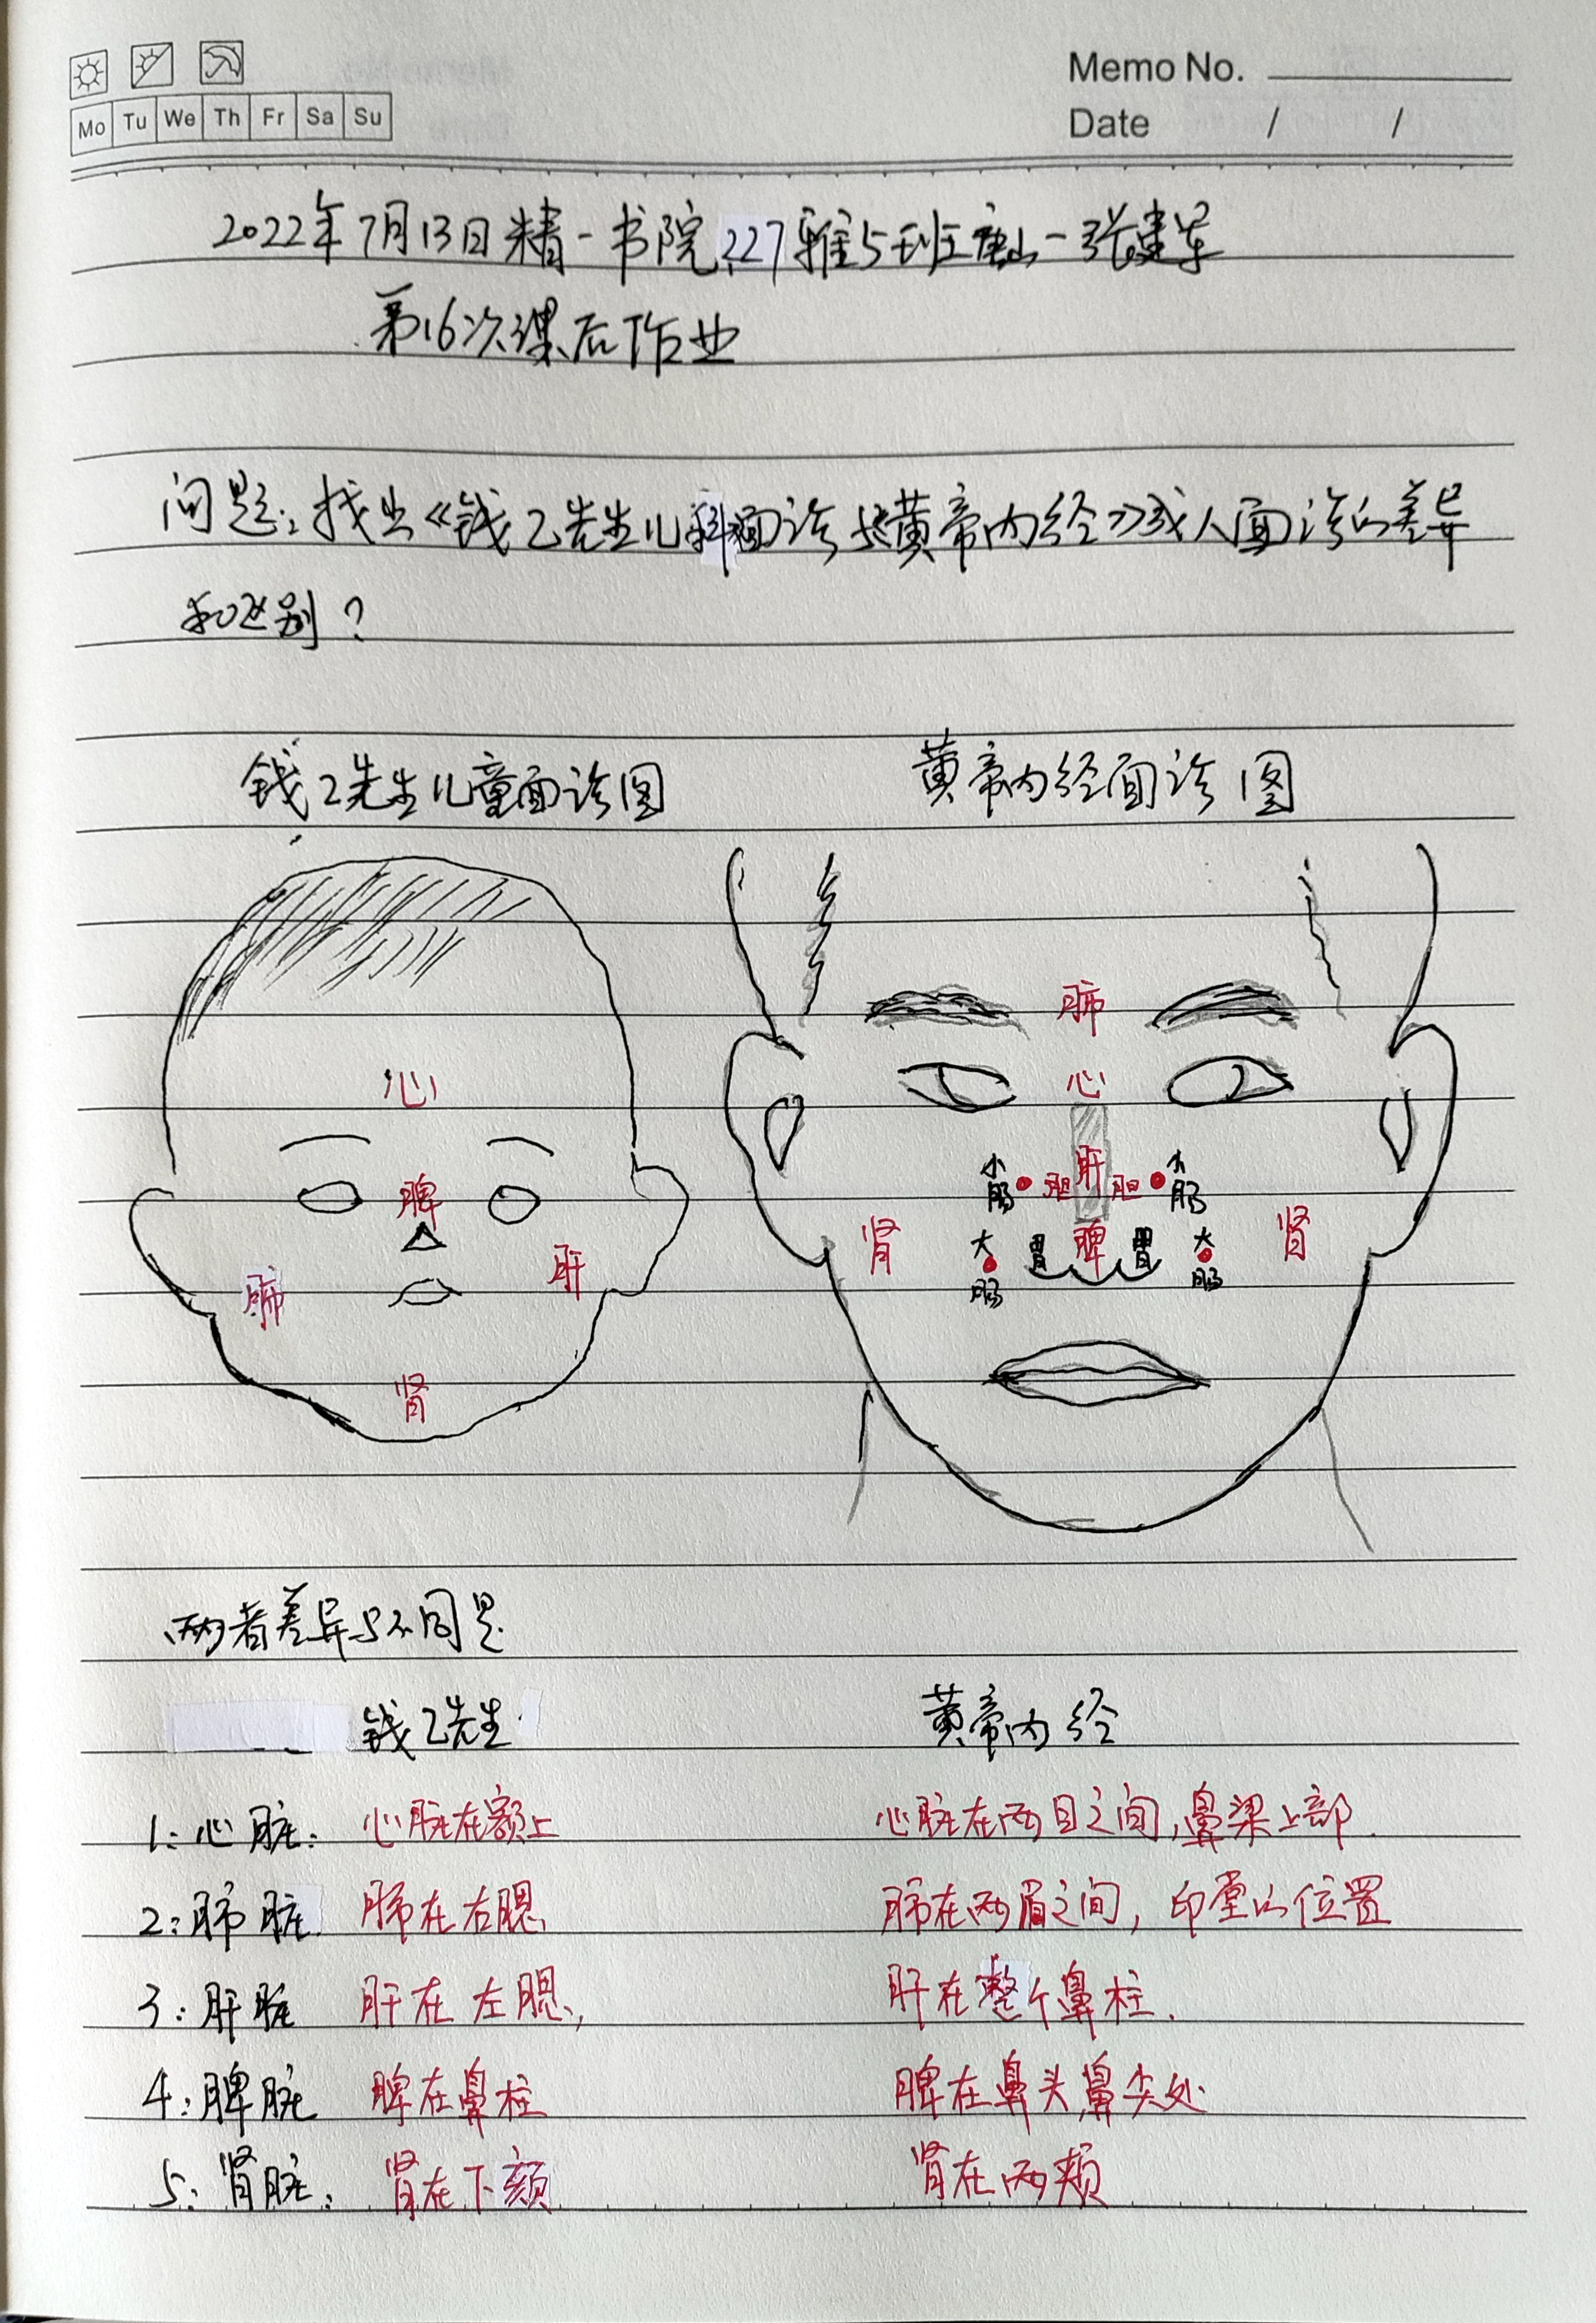 Memo No.
Mo Tu We Th Fr Sa Su
Date / /
2022年7月13日精一书院227雅5班唐山-张建军
第16次课后作业
问题：找出《钱乙先生儿科面诊与《黄帝内经》成人面诊的差异
和区别？
钱乙先生儿童面诊图 黄帝内经面诊图
肺
心 心
脾 小肠 胆 肝 胆 小肠
肺 肝 肾 大肠 胃 脾 胃 大肠 肾
肾
两者差异与不同是
钱乙先生 黄帝内经
1：心脏： 心脏在额上 心脏在两目之间，鼻梁上部.
2：肺脏. 肺在右腮 肺在两眉之间，印堂的位置
3：肝脏 肝在左腮， 肝在整个鼻柱.
4：脾脏 脾在鼻柱 脾在鼻头鼻尖处
5：肾脏： 肾在下颏 肾在两颊